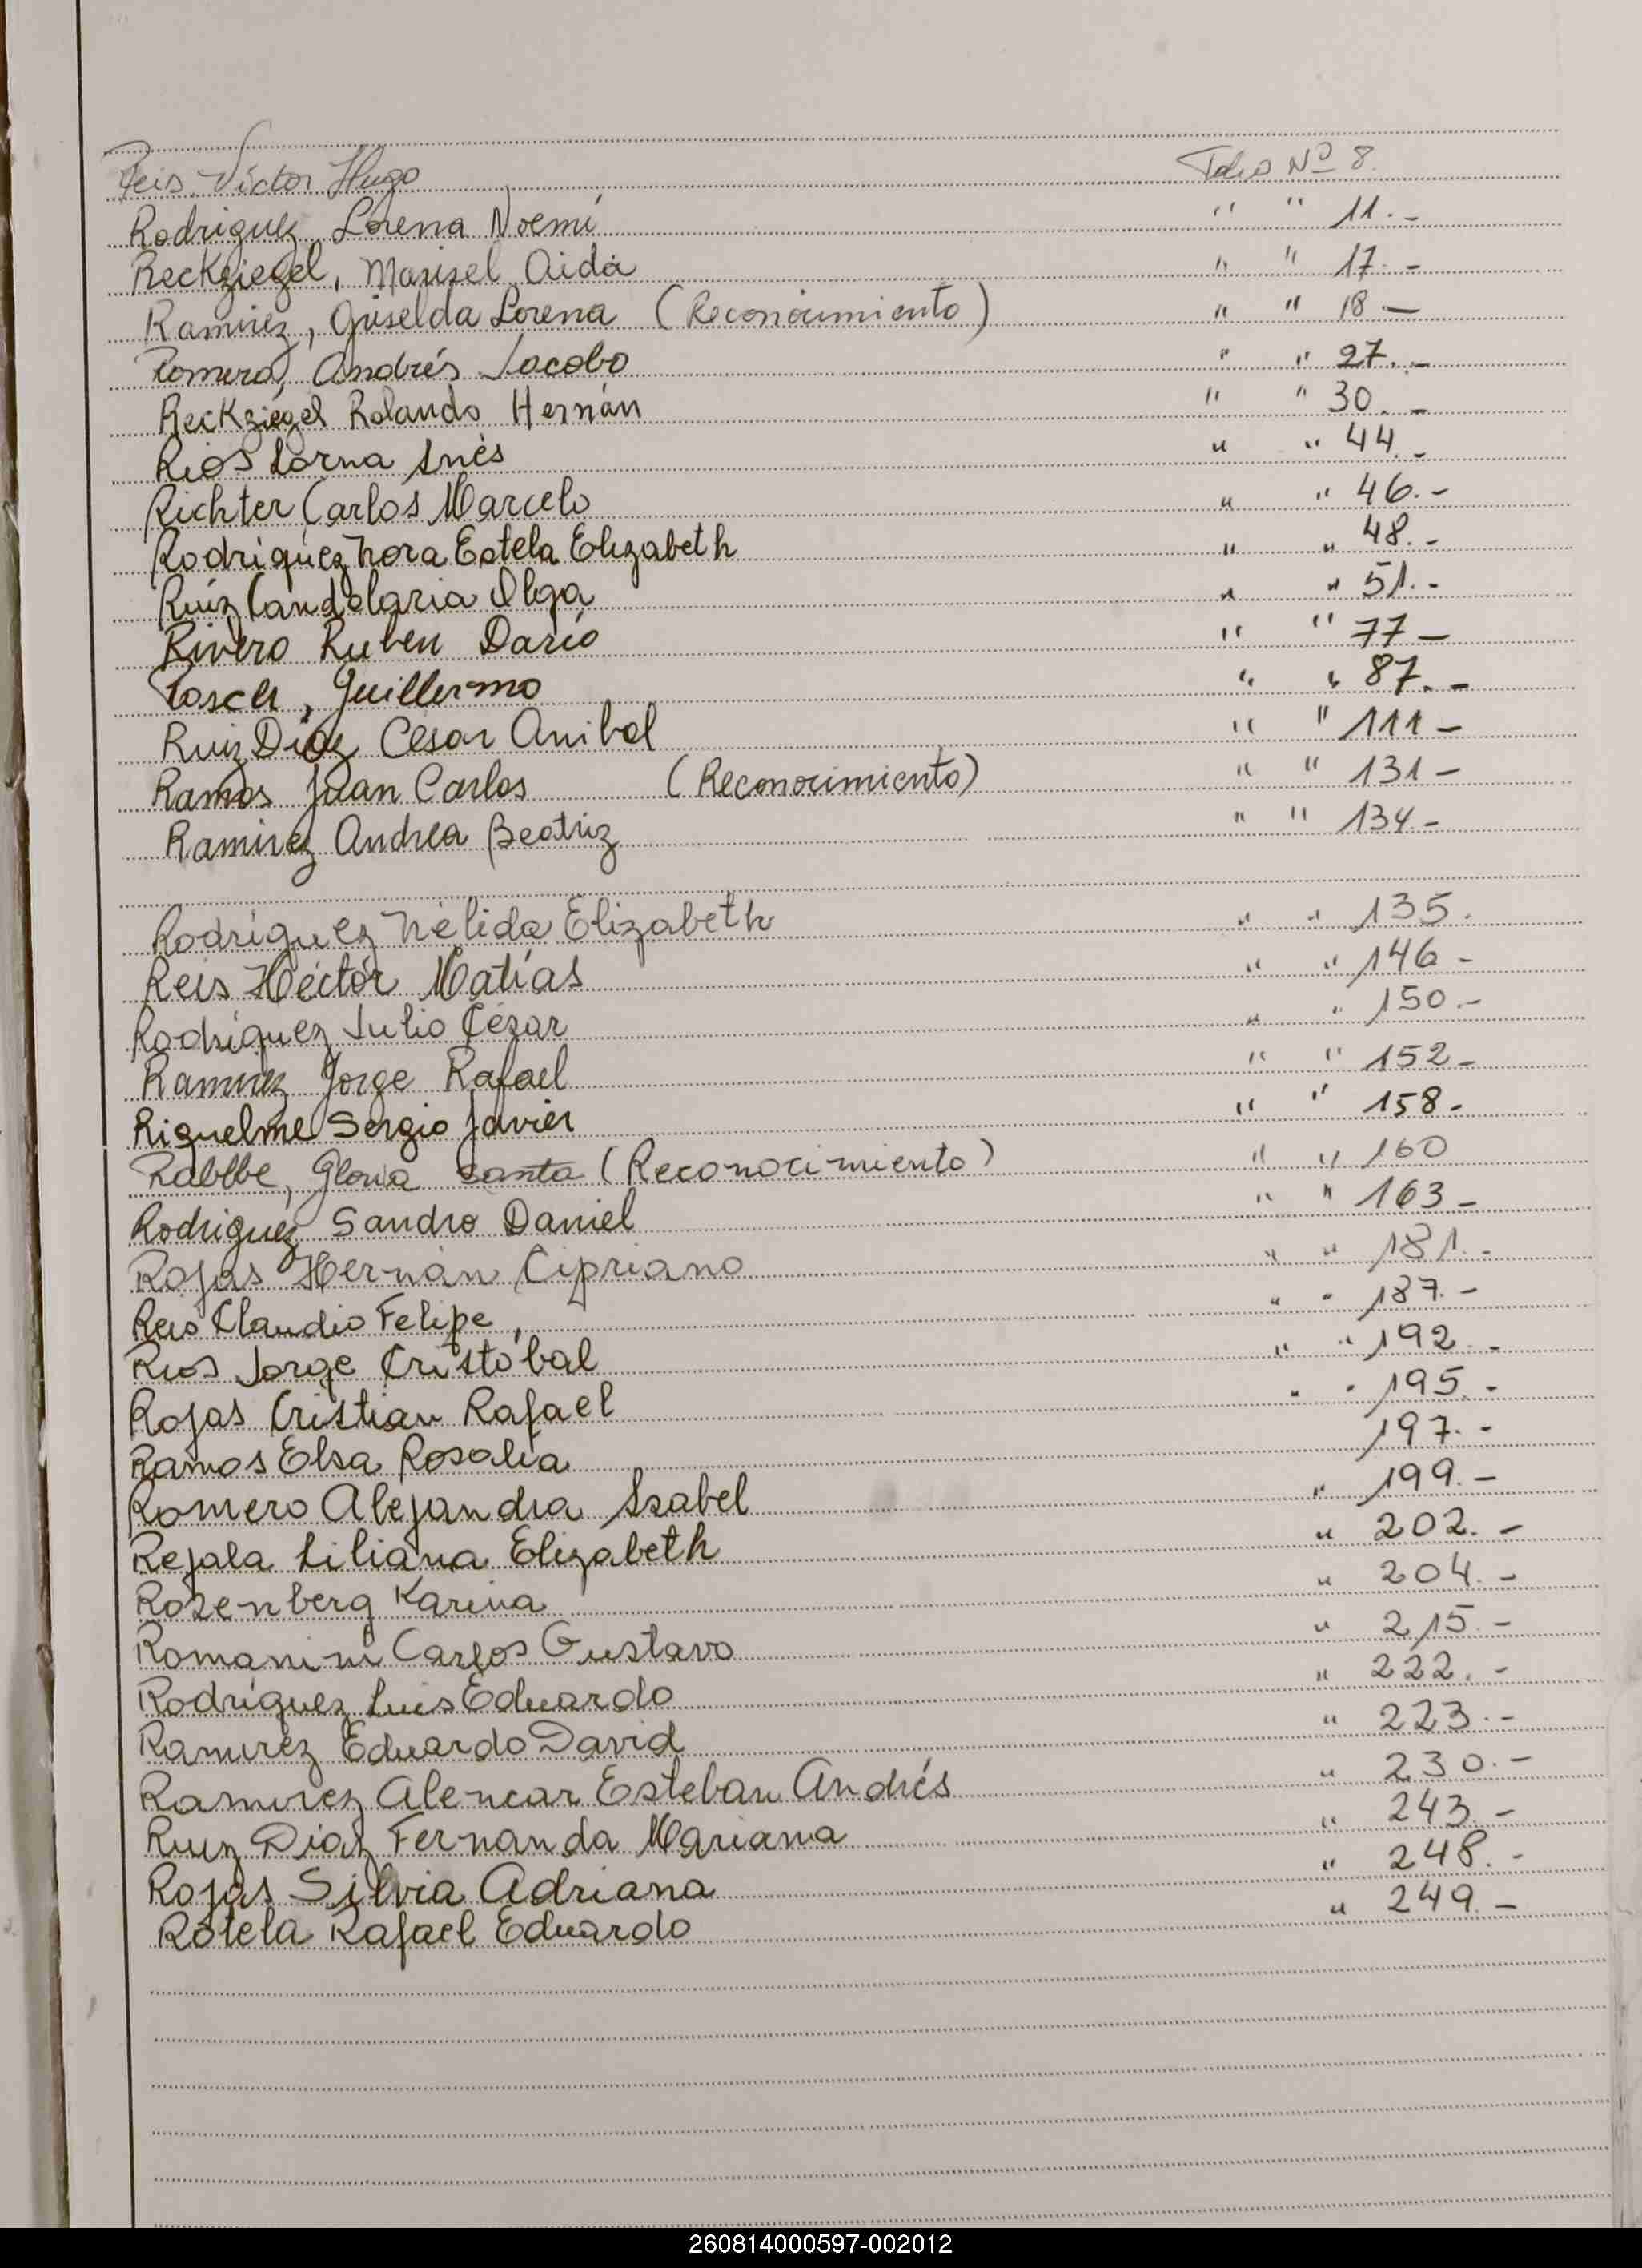 Reis Víctor Hugo Folio Nº 8.
Rodriguez, Lorena Noemí " " 11.-
Reckziegel, Marisel Aida " " 17.-
Ramirez, Griselda Lorena (Reconocimiento) " " 18 -
Romero, Andrés Jacobo " " 27.-
Reckziegel Rolando Hernán " " 30.-
Rios Lorna Inés " " 44.-
Richter Carlos Marcelo " " 46.-
Rodriguez Nora Estela Elizabeth " " 48.-
Ruiz Candelaria Olga " " 51.-
Rivero Ruben Darío " " 77 -
Rosch, Guillermo " " 87.-
Ruiz Diaz César Anibal " " 111 -
Ramos Juan Carlos (Reconocimiento) " " 131 -
Ramirez Andrea Beatriz " " 134 -
Rodríguez Nélida Elizabeth " " 135.
Reis Héctor Matías " " 146 -
Rodríguez Julio César " " 150.-
Ramirez Jorge Rafael " " 152 -
Riquelme Sergio Javier " " 158 -
Rabebe, Gloria Santa (Reconocimiento) " " 160
Rodriguez Sandro Daniel " " 163 -
Rojas Hernán Cipriano " " 181.-
Reis Claudio Felipe, " " 187.-
Rios Jorge Cristóbal " " 192.-
Rojas Cristian Rafael " " 195.-
Ramos Elsa Rosalia 197.-
Romero Alejandra Isabel " 199.-
Rejala Liliana Elizabeth " 202.-
Rozenberg Karina " 204.-
Romanini Carlos Gustavo " 215.-
Rodríguez Luis Eduardo " 222.-
Ramirez Eduardo David " 223.-
Ramirez Alencar Esteban Andrés " 230.-
Ruiz Diaz Fernanda Mariana " 243 -
Rojas Silvia Adriana " 248.-
Rotela Rafael Eduardo " 249.-
260814000597-002012